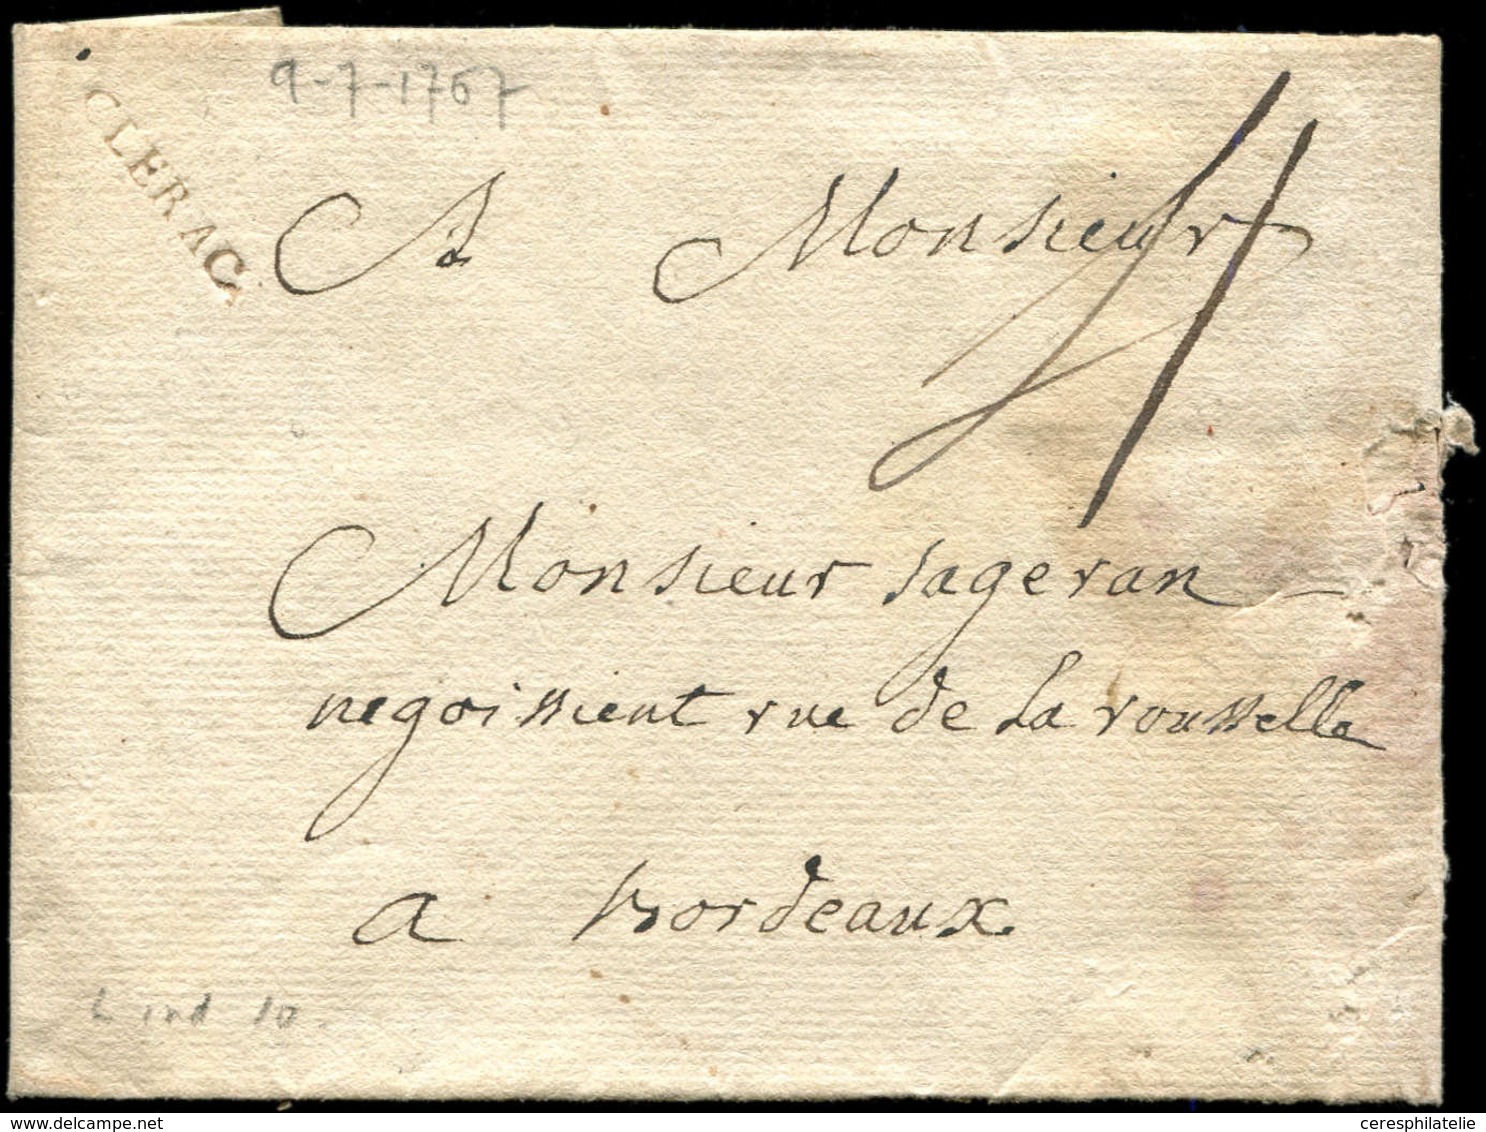 9-7-1767
CLERAC
A Monsieur
Monsieur sageran
negoissient rue de La rousselle
a bordeaux
L ind 10.
ceresphilatelie.com